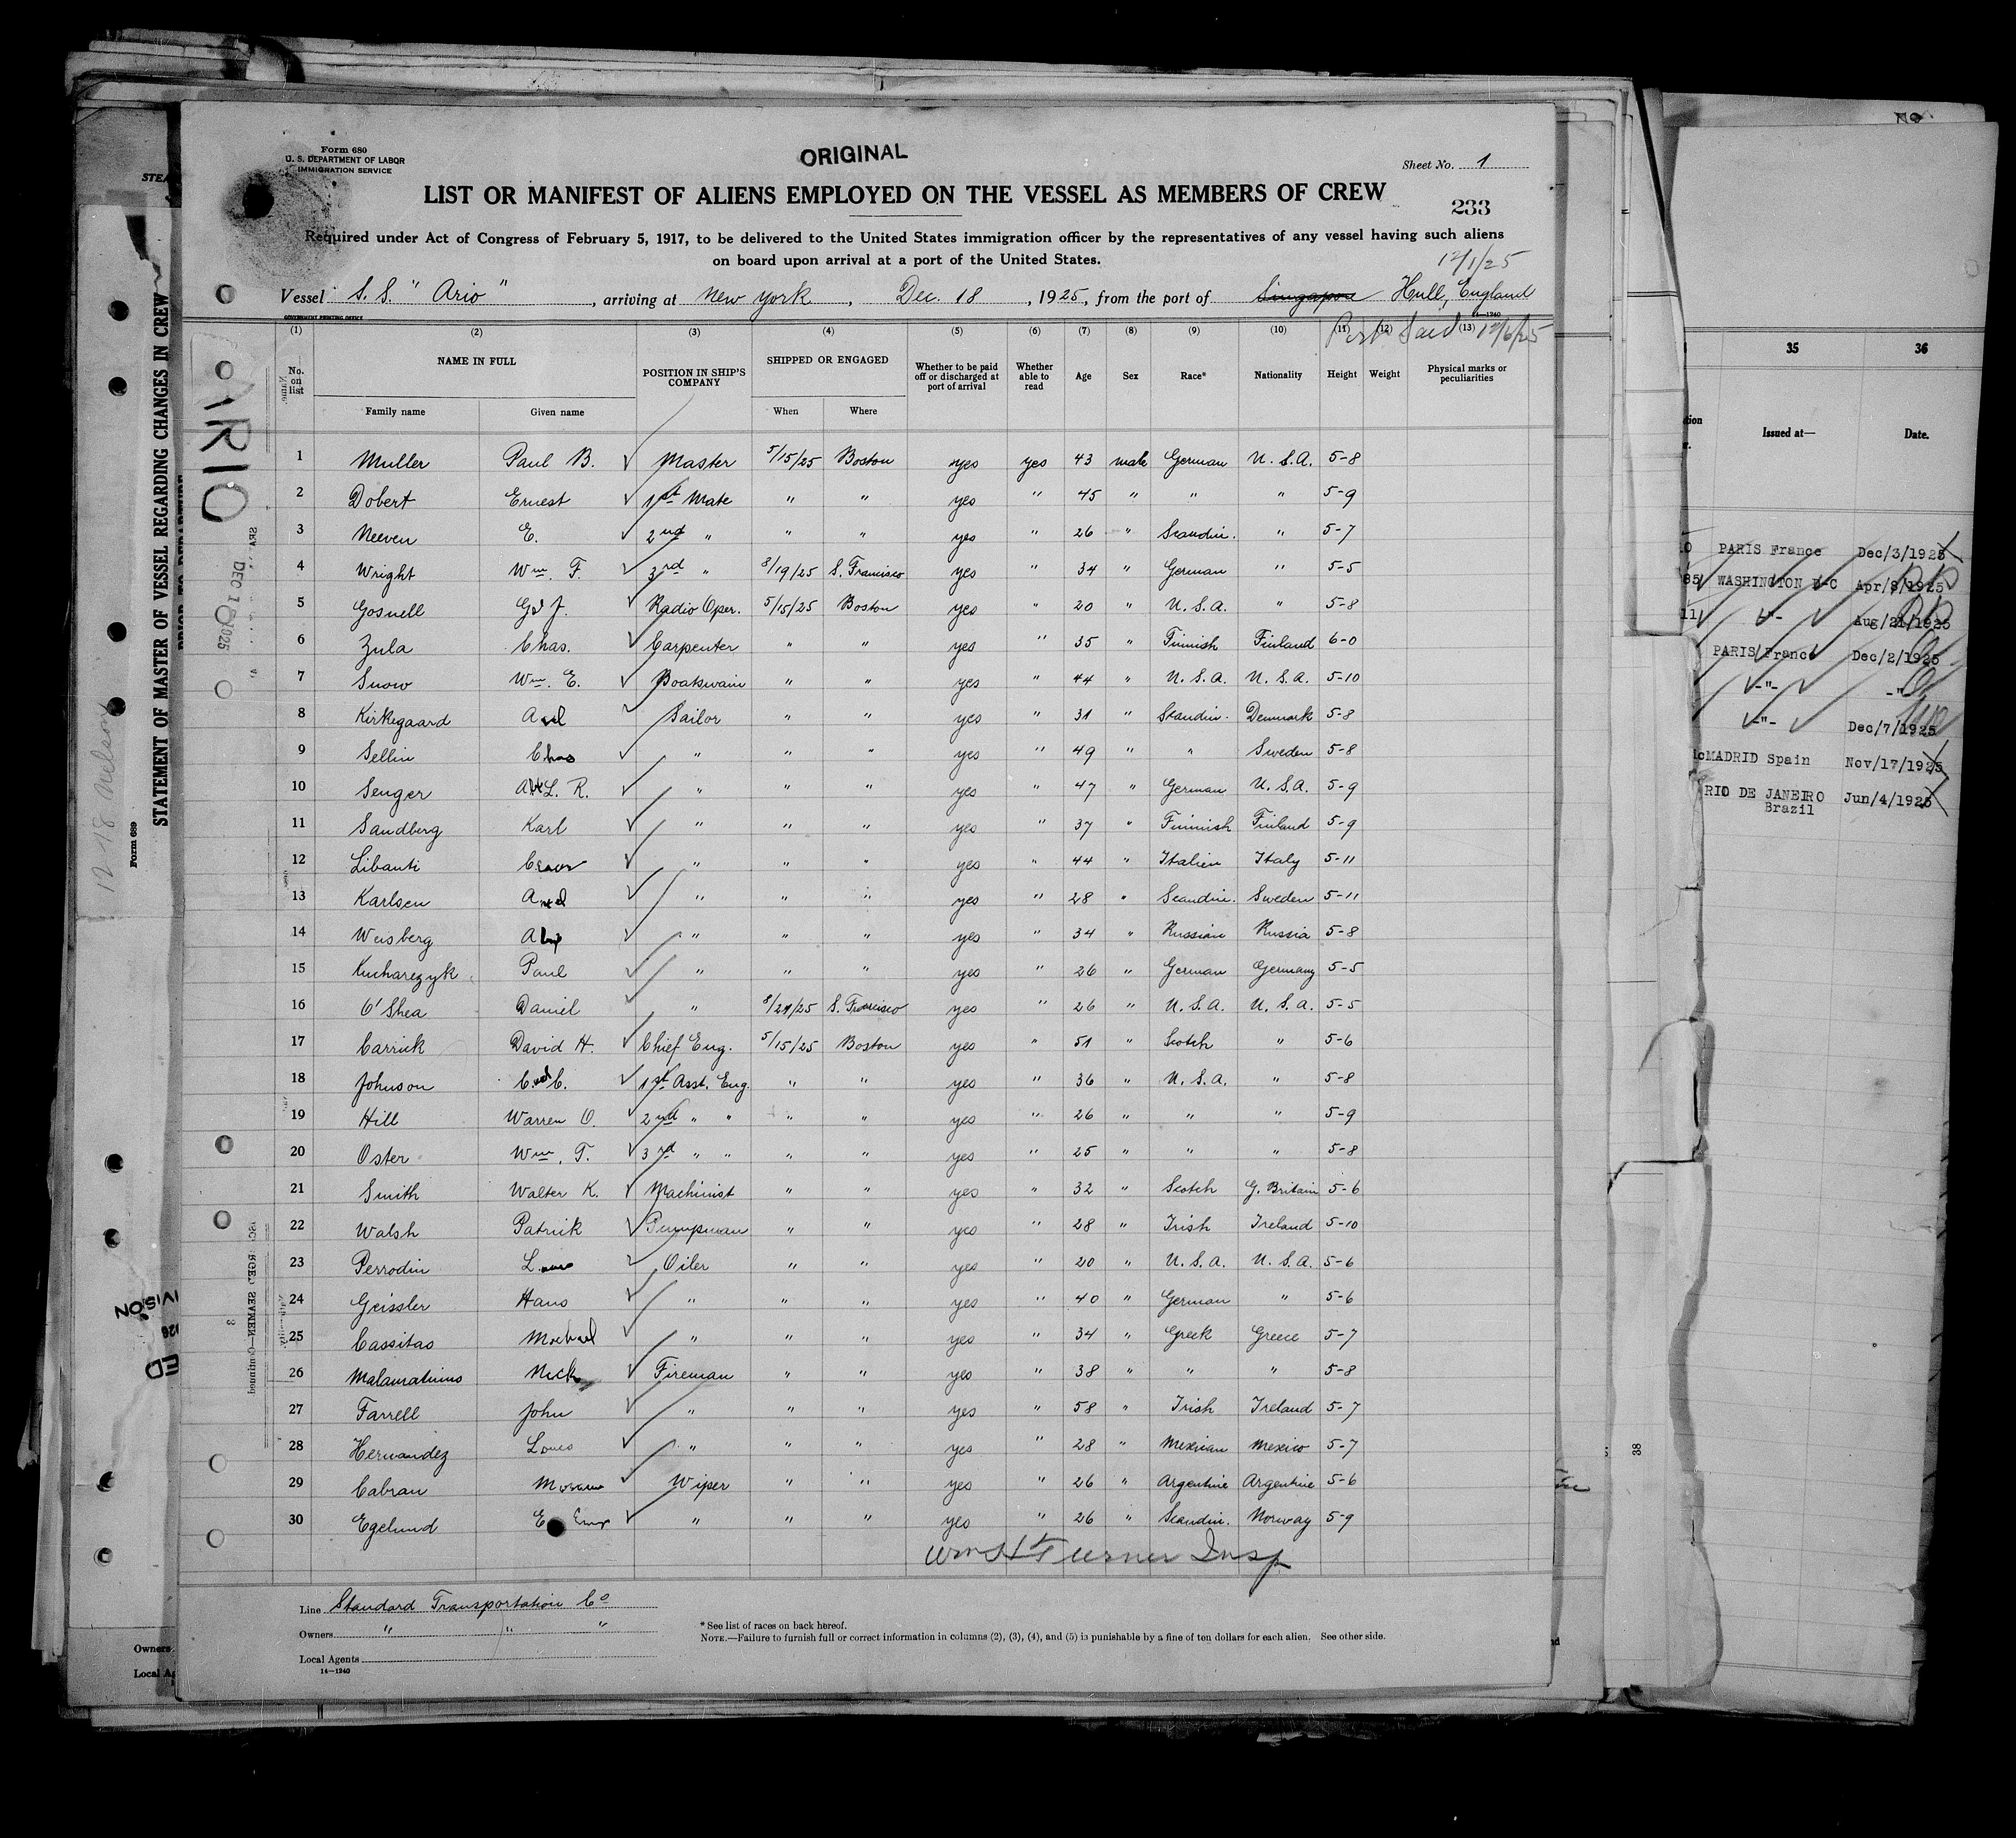 Form 680
U. S. DEPARTMENT OF LABOR
IMMIGRATION SERVICE
ORIGINAL
Sheet No. 1
LIST OR MANIFEST OF ALIENS EMPLOYED ON THE VESSEL AS MEMBERS OF CREW
233
Required under Act of Congress of February 5, 1917, to be delivered to the United States immigration officer by the representatives of any vessel having such aliens
on board upon arrival at a port of the United States.
12/1/25
Vessel S.S. "Ario", arriving at New York, Dec. 18, 1925, from the port of Singapore Hull, England
GOVERNMENT PRINTING OFFICE
14-1240
Port Said 12/6/25
(1) (2) (3) (4) (5) (6) (7) (8) (9) (10) (11) (12) (13)
No. on list
NAME IN FULL
Family name
Given name
POSITION IN SHIP'S COMPANY
SHIPPED OR ENGAGED
When
Where
Whether to be paid off or discharged at port of arrival
Whether able to read
Age
Sex
Race*
Nationality
Height
Weight
Physical marks or peculiarities
1 Muller Paul B. Master 5/15/25 Boston yes yes 43 male German U.S.A. 5-8
2 Dobert Ernest 1st Mate " " yes " 45 " " " 5-9
3 Neeven E. 2nd " " " yes " 26 " Scandin. " 5-7
4 Wright Wm. F. 3rd " 8/19/25 S. Francisco yes " 34 " German " 5-5
5 Gosnell J. Radio Oper. 5/15/25 Boston yes " 20 " U.S.A. " 5-8
6 Zula Chas. Carpenter " " yes " 35 " Finnish Finland 6-0
7 Snow Wm. E. Boatswain " " yes " 44 " U.S.A. U.S.A. 5-10
8 Kirkegaard Axel Sailor " " yes " 31 " Scandin. Denmark 5-8
9 Sellin Chas " " " yes " 49 " " Sweden 5-8
10 Senger L. R. " " " yes " 47 " German U.S.A. 5-9
11 Sandberg Karl " " " yes " 37 " Finnish Finland 5-9
12 Libanti " " " yes " 44 " Italien Italy 5-11
13 Karlsen Axel " " " yes " 28 " Scandin. Sweden 5-11
14 Weisberg " " " yes " 34 " Russian Russia 5-8
15 Kucharezyk Paul " " " yes " 26 " German Germany 5-5
16 O'Shea Daniel " 8/21/25 S. Francisco yes " 26 " U.S.A. U.S.A. 5-5
17 Carrick David H. Chief Eng. 5/15/25 Boston yes " 51 " Scotch " 5-6
18 Johnson C. 1st Asst. Eng. " " yes " 36 " U.S.A. " 5-8
19 Hill Warren O. 2nd " " " " yes " 26 " " " 5-9
20 Oster Wm. T. 3rd " " " " yes " 25 " " " 5-8
21 Smith Walter K. Machinist " " yes " 32 " Scotch G. Britain 5-6
22 Walsh Patrick Pumpman " " yes " 28 " Irish Ireland 5-10
23 Perrodin Oiler " " yes " 20 " U.S.A. U.S.A. 5-6
24 Geissler Hans " " " yes " 40 " German " 5-6
25 Cassitas Michael " " " yes " 34 " Greek Greece 5-7
26 Malamatinios Nick Fireman " " yes " 38 " " " 5-8
27 Farrell John " " " yes " 58 " Irish Ireland 5-7
28 Hernandez Louis " " " yes " 28 " Mexican Mexico 5-7
29 Cabran Wiper " " yes " 26 " Argentine Argentine 5-6
30 Egelund E " " " yes " 26 " Scandin. Norway 5-9
Wm H Turner Insp
Line Standard Transportation Co
Owners " " "
Local Agents
14-1240
* See list of races on back hereof.
NOTE.—Failure to furnish full or correct information in columns (2), (3), (4), and (5) is punishable by a fine of ten dollars for each alien. See other side.
ARIO
DEC 18 1925
STATEMENT OF MASTER OF VESSEL REGARDING CHANGES IN CREW
PRIOR TO DEPARTURE
Form 689
12-18 Nelson
Owners
Local Ag
35 36
Issued at— Date.
PARIS France Dec/3/1925
WASHINGTON D-C Apr/8/1925
-"- Aug/21/1925
PARIS France Dec/2/1925
-"- -"-
-"- Dec/7/1925
MADRID Spain Nov/17/1925
RIO DE JANEIRO Jun/4/1925
Brazil
38